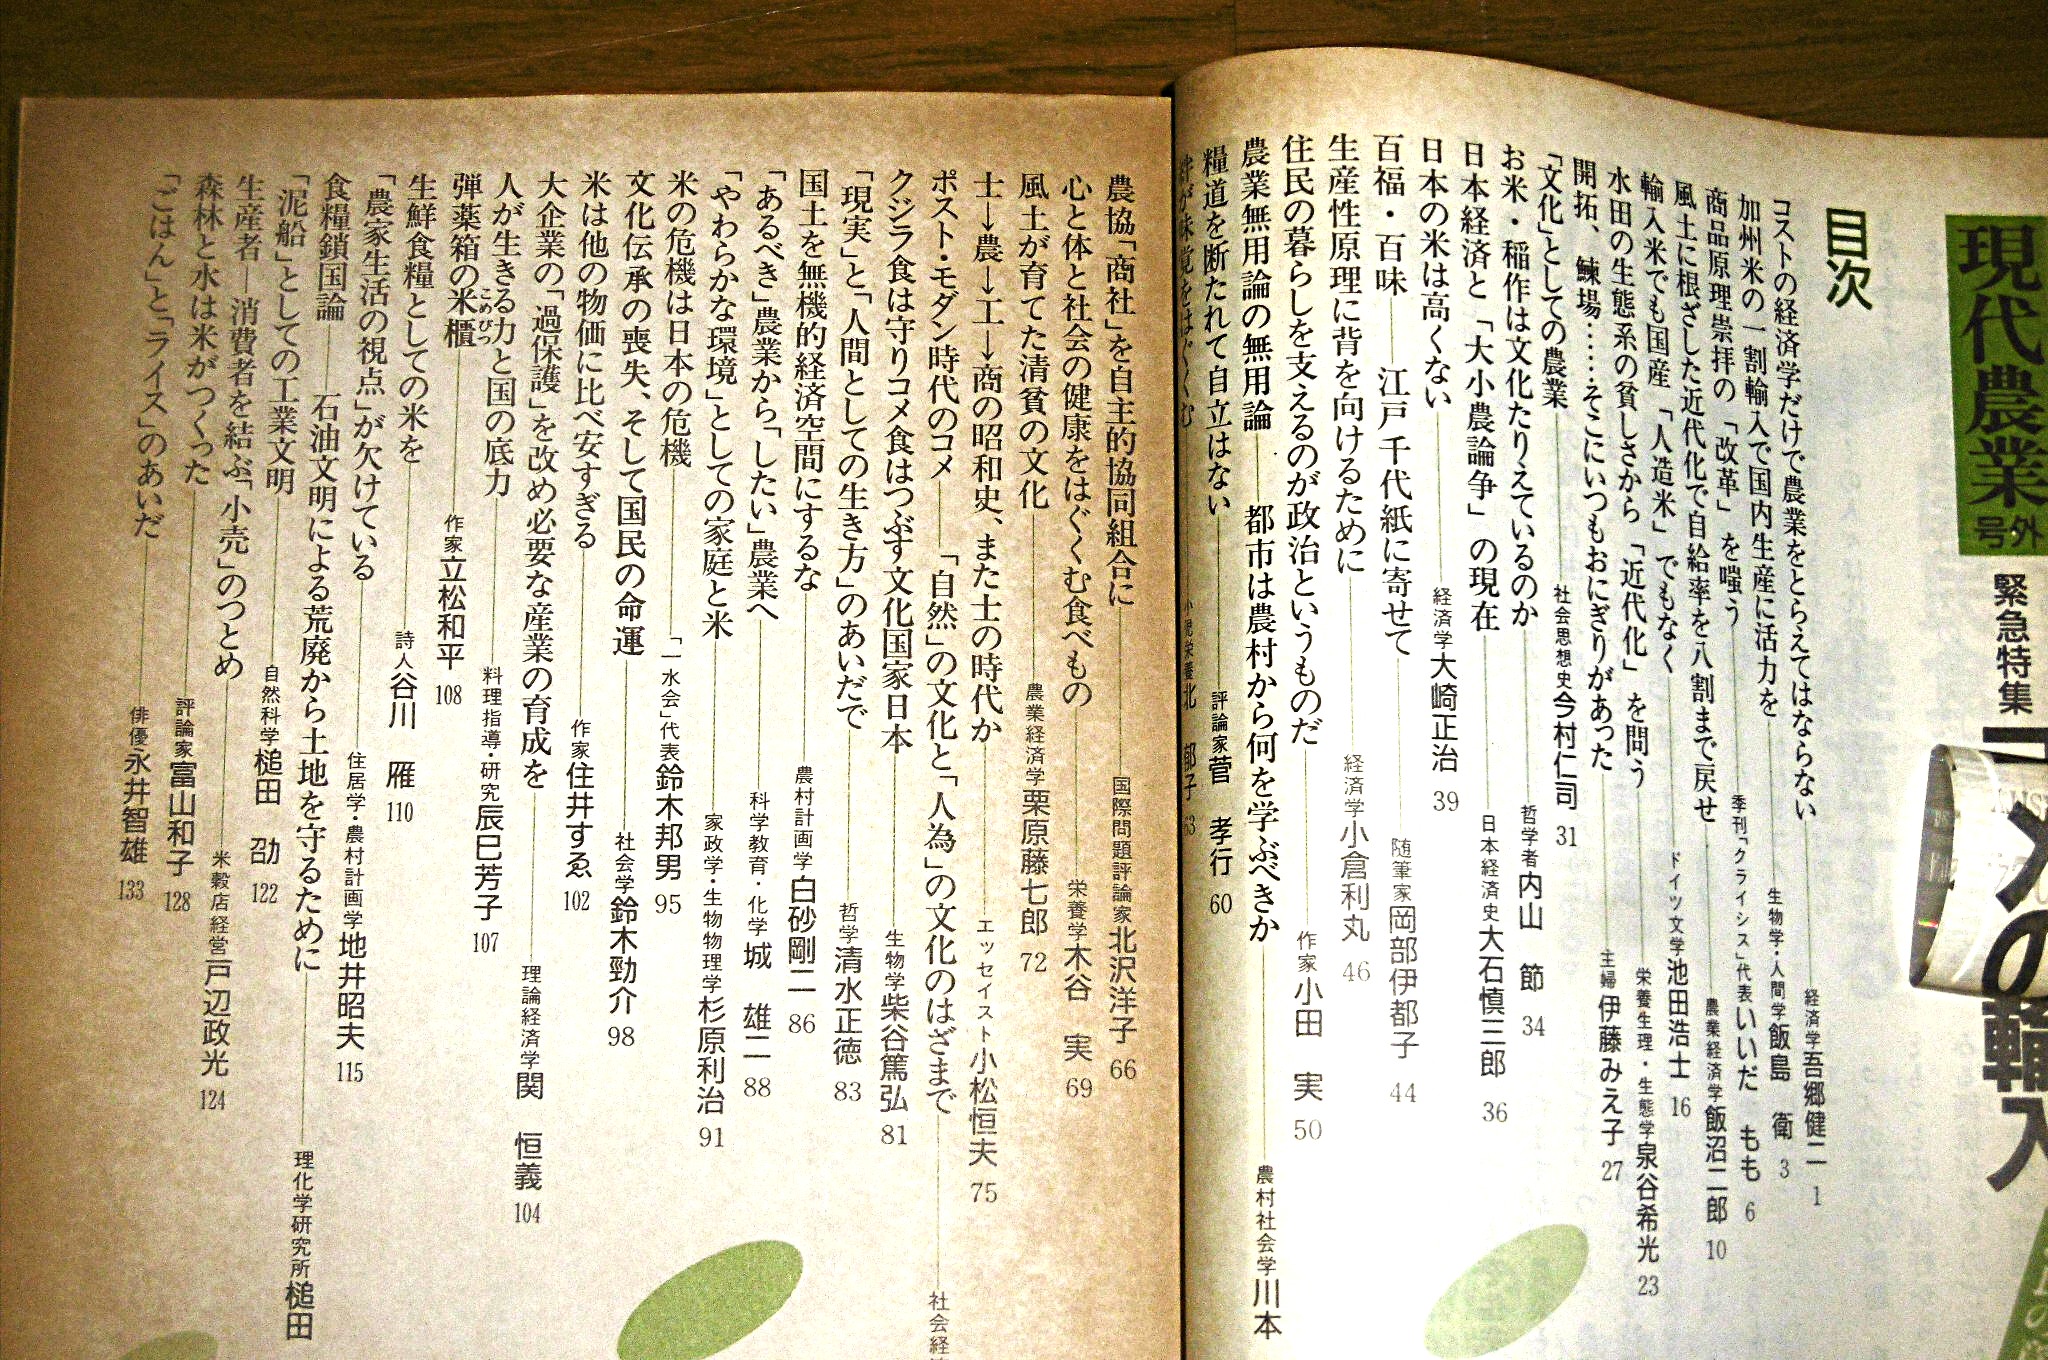 現代農業
号外
緊急特集
メの輸入
目次
コストの経済学だけで農業をとらえてはならない 経済学 吾郷健二 1
加州米の一割輸入で国内生産に活力を 生物学・人間学 飯島 衛 3
商品原理崇拝の「改革」を嗤う 季刊「クライシス」代表 いいだ もも 6
風土に根ざした近代化で自給率を八割まで戻せ 農業経済学 飯沼二郎 10
輸入米でも国産「人造米」でもなく ドイツ文学 池田浩士 16
水田の生態系の貧しさから「近代化」を問う 栄養生理・生態学 泉谷希光 23
開拓、鰊場……そこにいつもおにぎりがあった 主婦 伊藤みえ子 27
「文化」としての農業 社会思想史 今村仁司 31
お米・稲作は文化たりえているのか 哲学者 内山 節 34
日本経済と「大小農論争」の現在 日本経済史 大石慎三郎 36
日本の米は高くない 経済学 大崎正治 39
百福・百味――江戸千代紙に寄せて 随筆家 岡部伊都子 44
生産性原理に背を向けるために 経済学 小倉利丸 46
住民の暮らしを支えるのが政治というものだ 作家 小田 実 50
農業無用論の無用論――都市は農村から何を学ぶべきか 農村社会学 川本
糧道を断たれて自立はない 評論家 菅 孝行 60
味覚をはぐくむ 小児栄養 北 郁子 63
農協「商社」を自主的協同組合に 国際問題評論家 北沢洋子 66
心と体と社会の健康をはぐくむ食べもの 栄養学 木谷 実 69
風土が育てた清貧の文化 農業経済学 栗原藤七郎 72
士→農→工→商の昭和史、また士の時代か エッセイスト 小松恒夫 75
ポスト・モダン時代のコメ――「自然」の文化と「人為」の文化のはざまで 社会経
クジラ食は守りコメ食はつぶす文化国家日本 生物学 柴谷篤弘 81
「現実」と「人間としての生き方」のあいだで 哲学 清水正徳 83
国土を無機的経済空間にするな 農村計画学 白砂剛二 86
「あるべき」農業から「したい」農業へ 科学教育・化学 城 雄二 88
「やわらかな環境」としての家庭と米 家政学・生物物理学 杉原利治 91
米の危機は日本の危機 「一水会」代表 鈴木邦男 95
文化伝承の喪失、そして国民の命運 社会学 鈴木勁介 98
米は他の物価に比べ安すぎる 作家 住井すゑ 102
大企業の「過保護」を改め必要な産業の育成を 理論経済学 関 恒義 104
人が生きる力と国の底力 料理指導・研究 辰巳芳子 107
弾薬箱の米櫃 こめびつ 作家 立松和平 108
生鮮食糧としての米を 詩人 谷川 雁 110
「農家生活の視点」が欠けている 住居学・農村計画学 地井昭夫 115
食糧鎖国論――石油文明による荒廃から土地を守るために 理化学研究所 槌田
「泥船」としての工業文明 自然科学 槌田 劭 122
生産者―消費者を結ぶ「小売」のつとめ 米穀店経営 戸辺政光 124
森林と水は米がつくった 評論家 富山和子 128
「ごはん」と「ライス」のあいだ 俳優 永井智雄 133